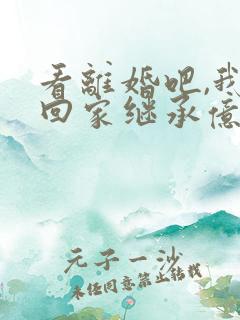 看離婚吧,我
回家继承億
元子一沙
未经同意禁止转载